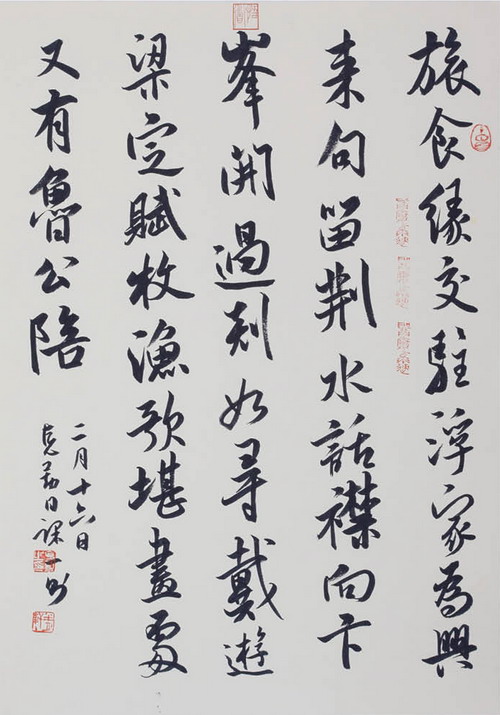 旅食緣交駐浮家為興
来句留荆水話襟向卞
峯開過剡如尋戴遊
梁定賦枚漁歌堪畫處
又有魯公陪
二月十六日
克勤日課